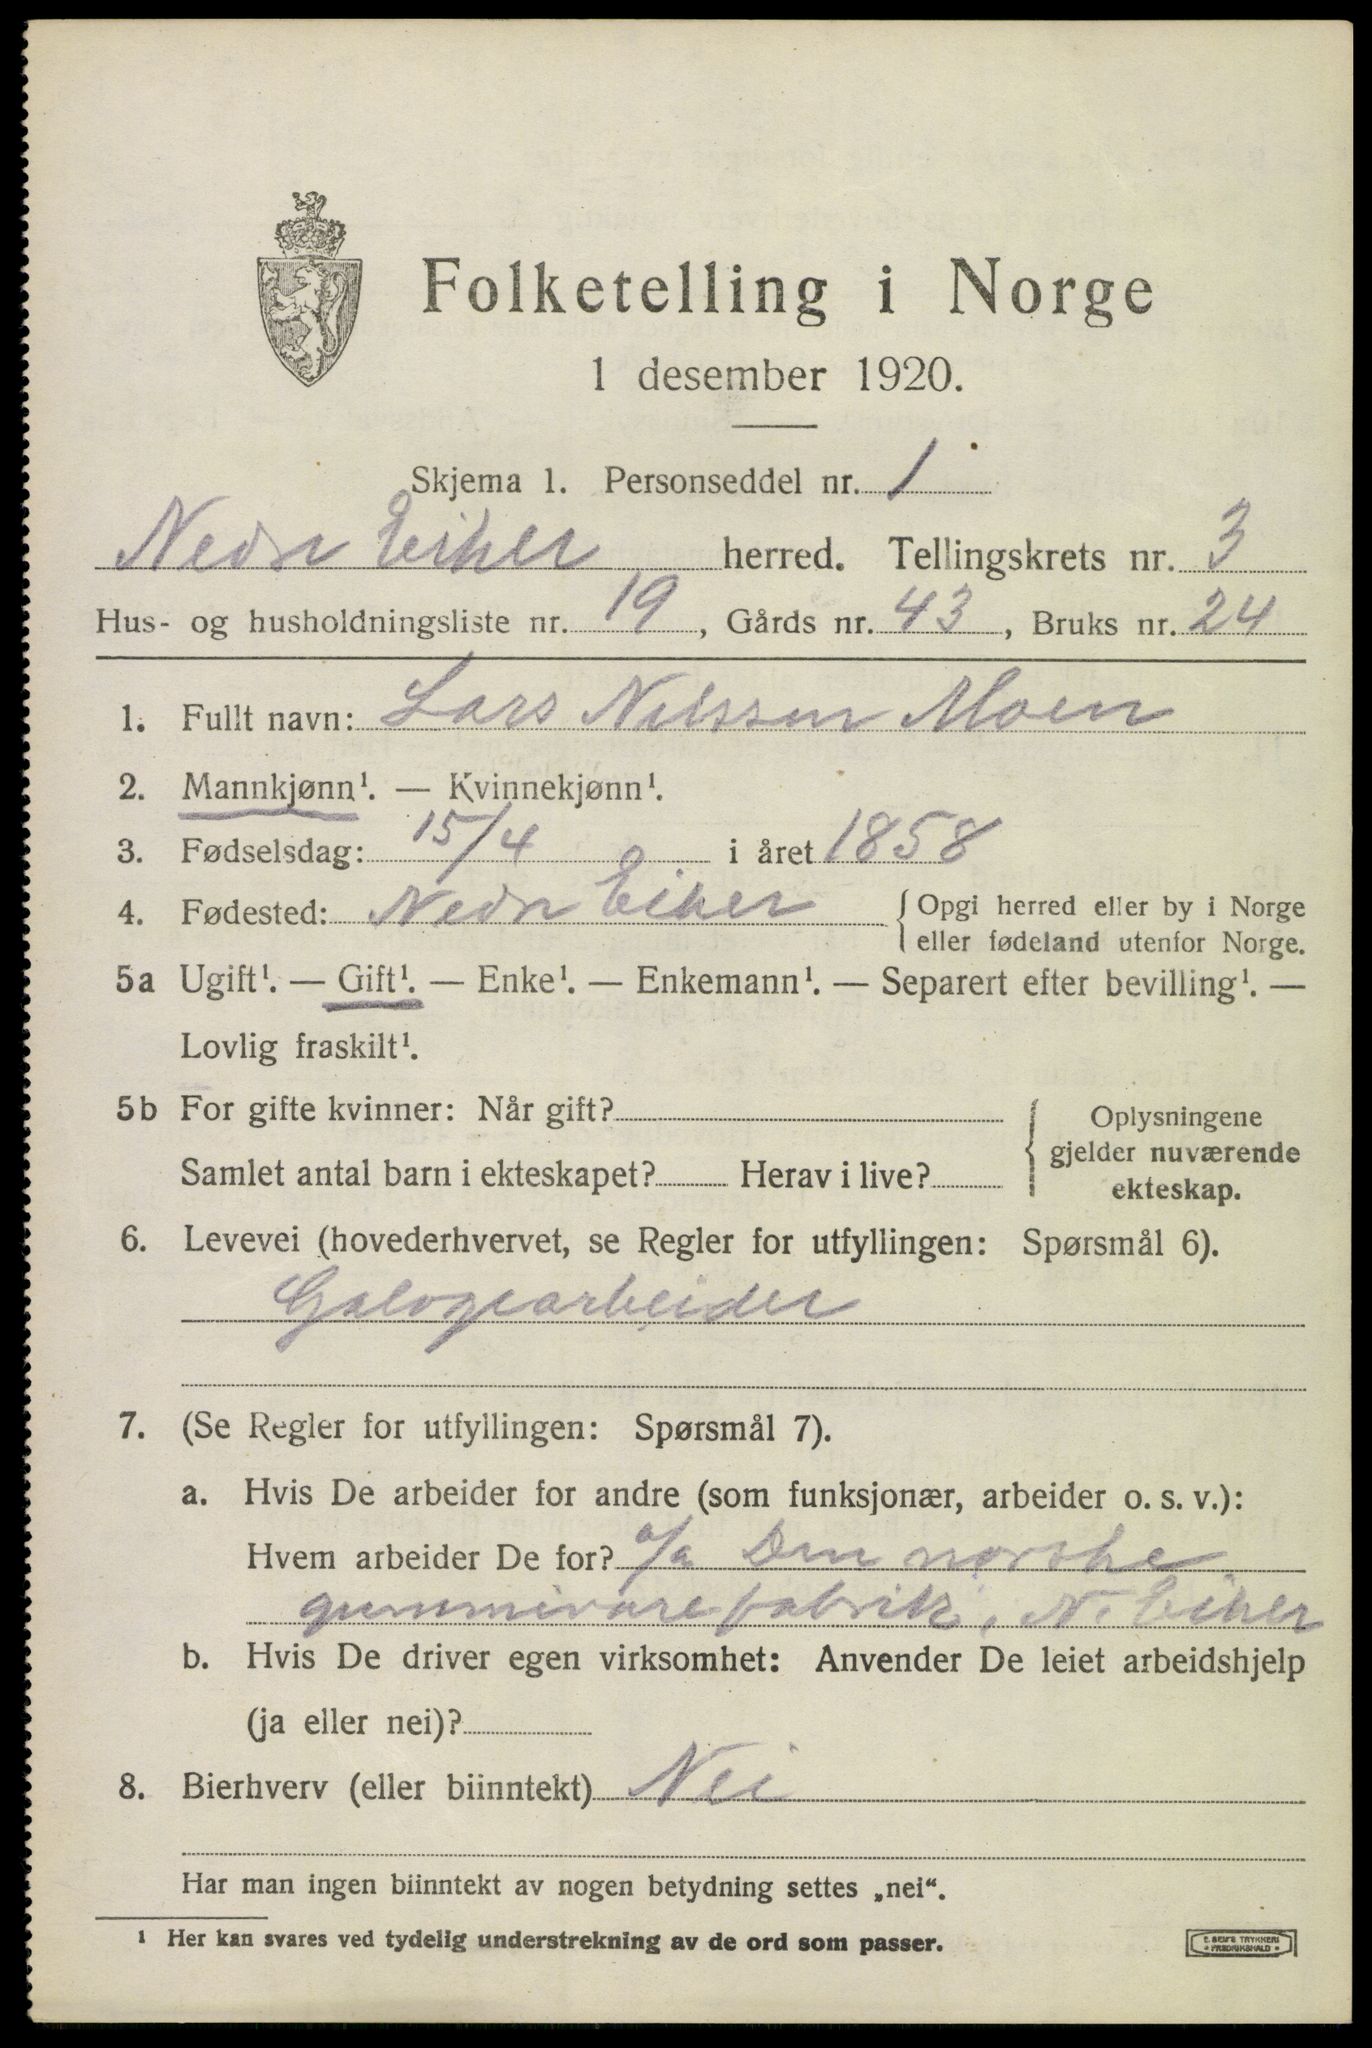 Folketelling i Norge
1 desember 1920.
Skjema 1. Personseddel nr. 1
Nedr Eiker herred. Tellingskrets nr. 3
Hus- og husholdningsliste nr. 19, Gårds nr. 43, Bruks nr. 24
1. Fullt navn: Lars Nilssen Moen
2. Mannkjønn¹. — Kvinnekjønn¹.
3. Fødselsdag: 15/4 i året 1858
4. Fødested: Nedr Eiker { Opgi herred eller by i Norge
eller fødeland utenfor Norge.
5a Ugift¹. — Gift¹. — Enke¹. — Enkemann¹. — Separert efter bevilling¹. —
Lovlig fraskilt¹.
5b For gifte kvinner: Når gift?
Samlet antal barn i ekteskapet? Herav i live?
{ Oplysningene
gjelder nuværende
ekteskap.
6. Levevei (hovederhvervet, se Regler for utfyllingen: Spørsmål 6).
Galogearbeider
7. (Se Regler for utfyllingen: Spørsmål 7).
a. Hvis De arbeider for andre (som funksjonær, arbeider o. s. v.):
Hvem arbeider De for? a/s Den norske
gummivarefabrik, N. Eiker
b. Hvis De driver egen virksomhet: Anvender De leiet arbeidshjelp
(ja eller nei)?
8. Bierhverv (eller biinntekt) Nei
Har man ingen biinntekt av nogen betydning settes „nei“.
¹ Her kan svares ved tydelig understrekning av de ord som passer.
E. SEM'S TRYKKERI
FREDRIKSHALD